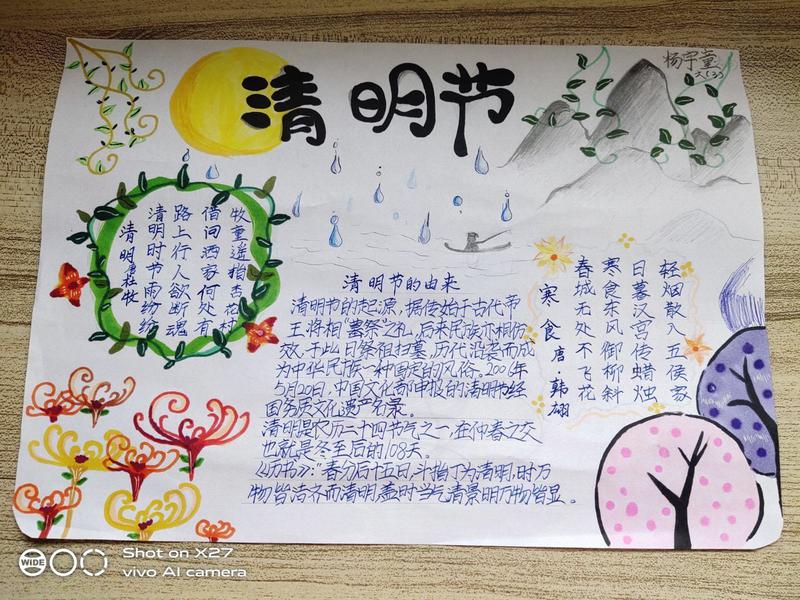 清明节
清明 唐 杜牧
清明时节雨纷纷
路上行人欲断魂
借问酒家何处有
牧童遥指杏花村
清明节的由来
清明节的起源，据传始于古代帝
王将相“墓祭”之礼，后来民族亦相仿
效，于此日祭祖扫墓，历代沿袭而成
为中华民族一种固定的风俗。2006年
5月20日，中国文化部申报的清明节经
国务质文化遗产名录。
清明是农历二十四节气之一，在仲春之交
也就是冬至后的108天。
《历书》："春分后十五日，斗指丁为清明，时万
物皆洁齐而清明，盖时当气清景明万物皆显。
寒食 唐·韩翃
春城无处不飞花
寒食东风御柳斜
日暮汉宫传蜡烛
轻烟散入五侯家
WIDE
Shot on X27
vivo AI camera